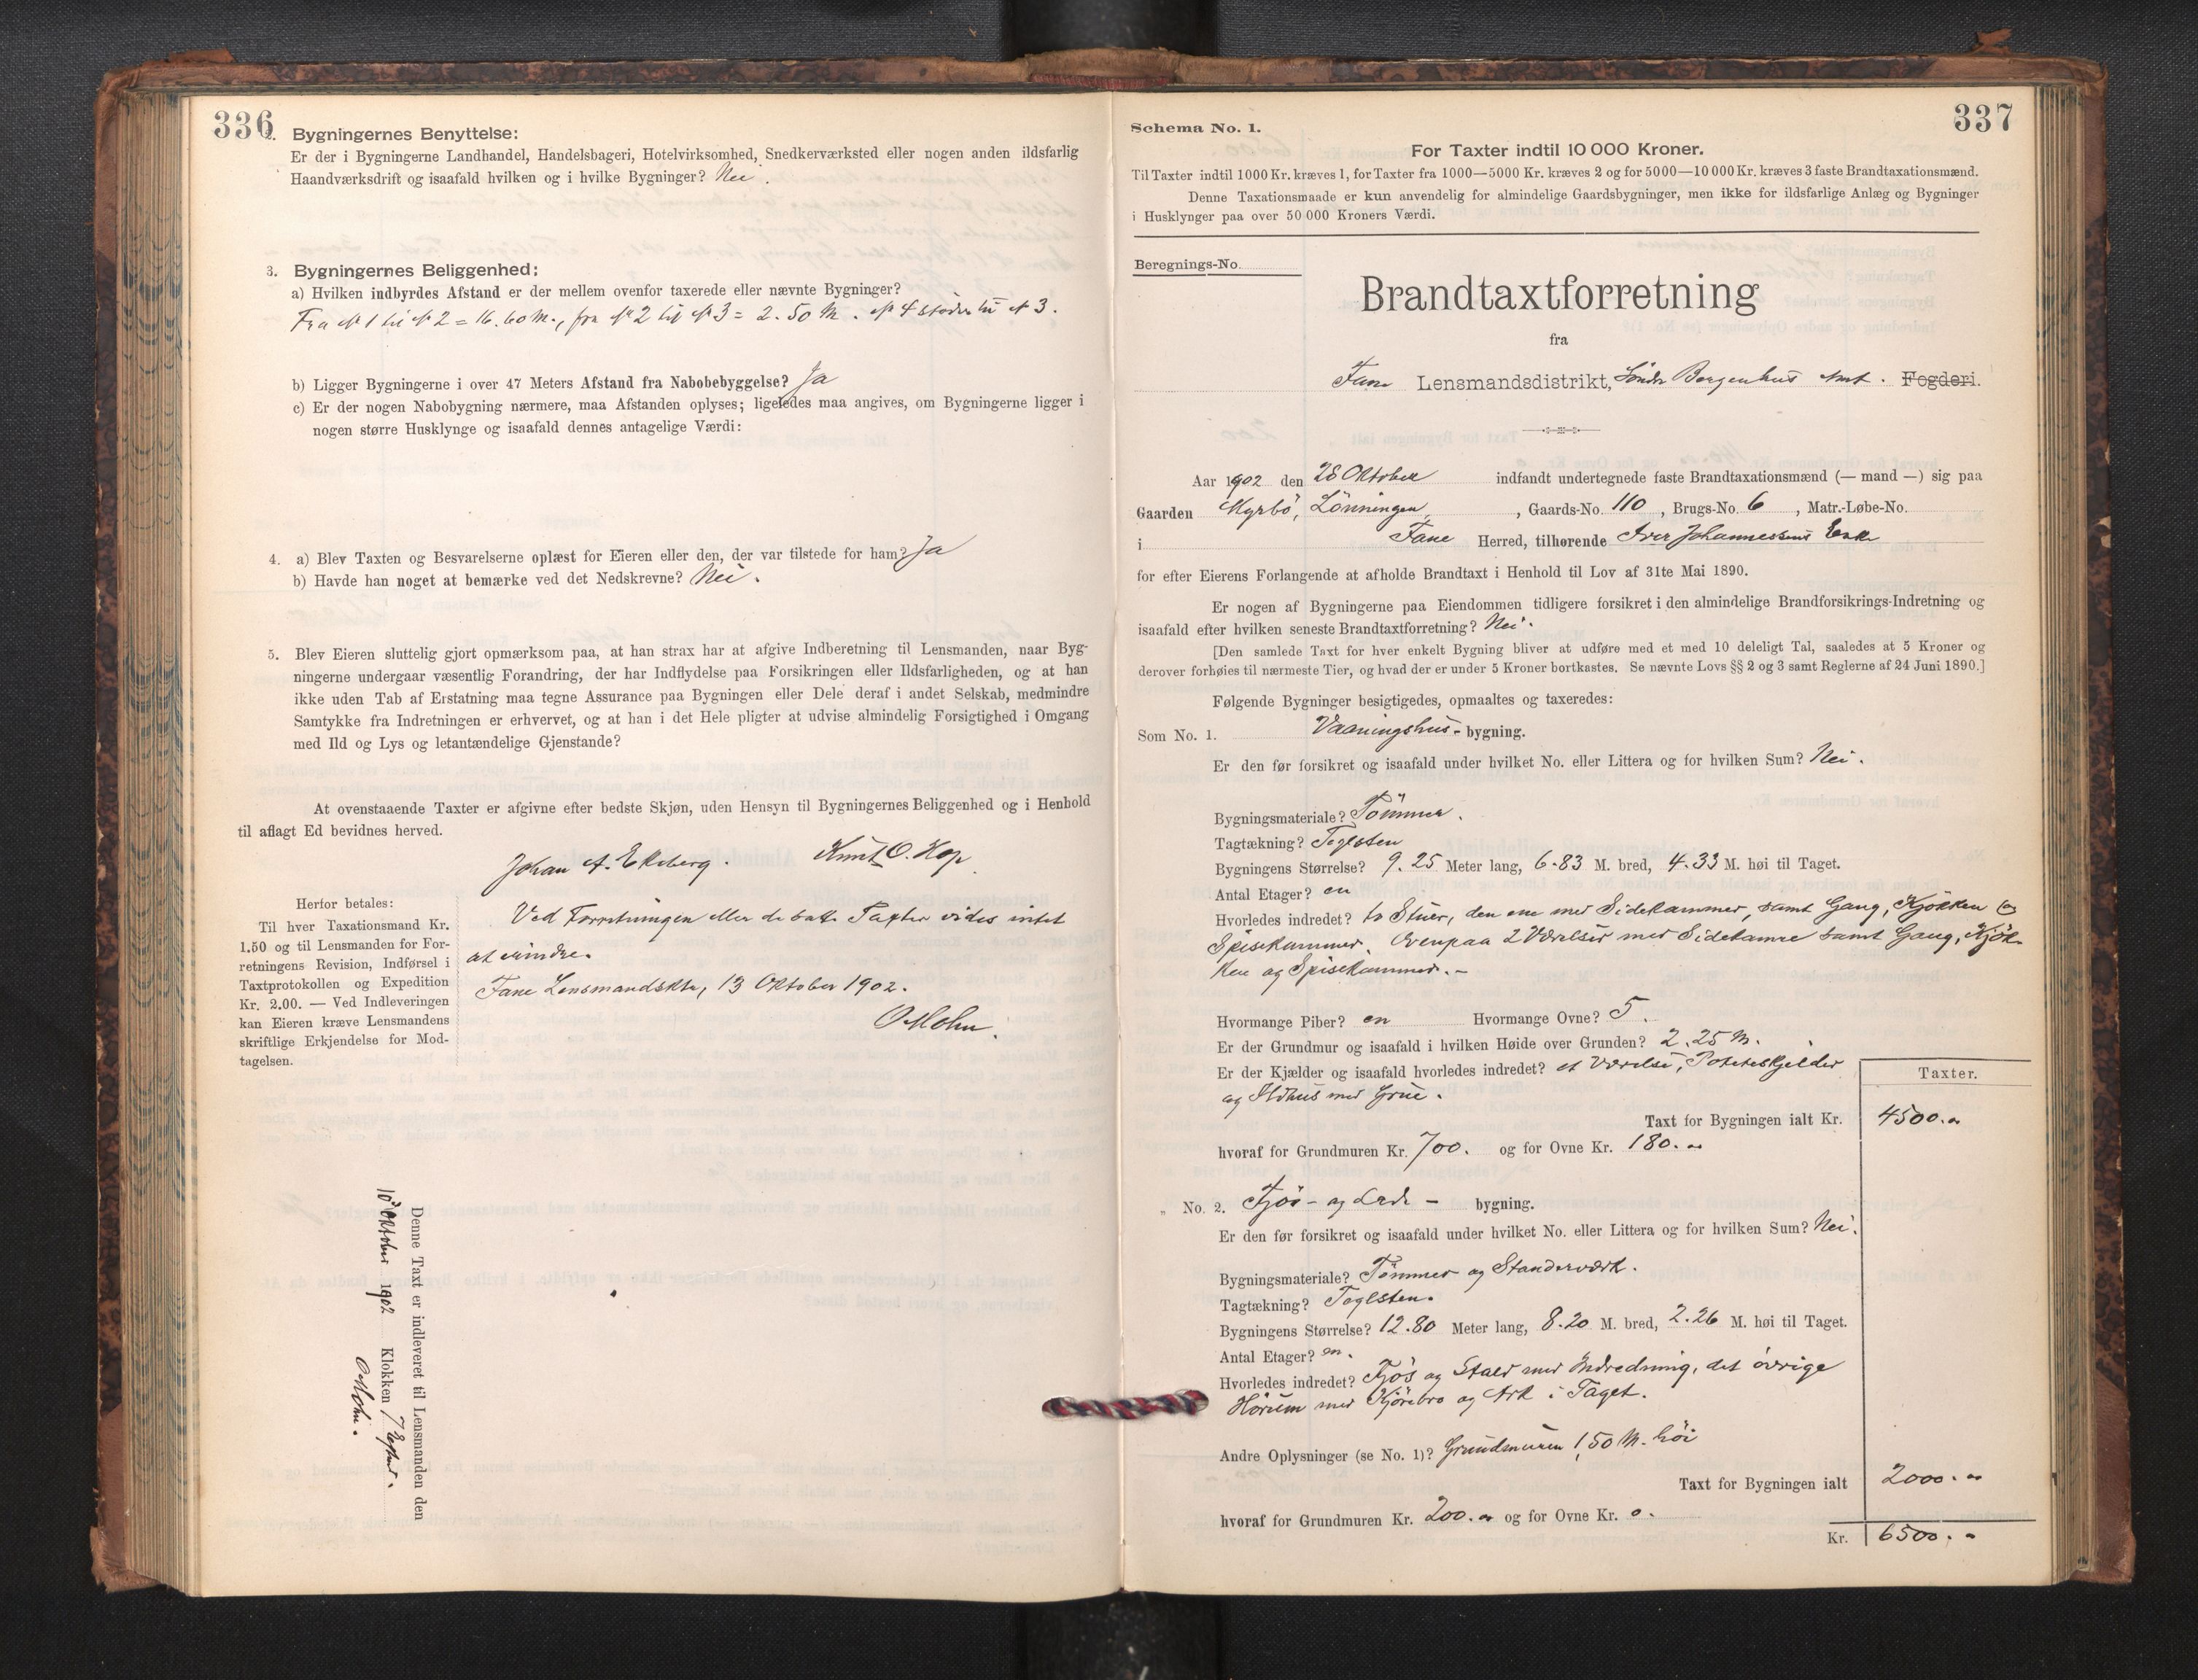 336
2. Bygningernes Benyttelse:
Er der i Bygningerne Landhandel, Handelsbageri, Hotelvirksomhed, Snedkerværksted eller nogen anden ildsfarlig
Haandværksdrift og isaafald hvilken og i hvilke Bygninger? Nei.
3. Bygningernes Beliggenhed:
a) Hvilken indbyrdes Afstand er der mellem ovenfor taxerede eller nævnte Bygninger?
Fra No 1 til No 2 = 16.60 M., fra No 2 til No 3 = 2.50 M. No 4 støder til No 3.
b) Ligger Bygningerne i over 47 Meters Afstand fra Nabobebyggelse? Ja
c) Er der nogen Nabobygning nærmere, maa Afstanden oplyses; ligeledes maa angives, om Bygningerne ligger i
nogen større Husklynge og isaafald dennes antagelige Værdi:
4. a) Blev Taxten og Besvarelserne oplæst for Eieren eller den, der var tilstede for ham? Ja
b) Havde han noget at bemærke ved det Nedskrevne? Nei.
5. Blev Eieren sluttelig gjort opmærksom paa, at han strax har at afgive Indberetning til Lensmanden, naar Byg-
ningerne undergaar væsentlig Forandring, der har Indflydelse paa Forsikringen eller Ildsfarligheden, og at han
ikke uden Tab af Erstatning maa tegne Assurance paa Bygningen eller Dele deraf i andet Selskab, medmindre
Samtykke fra Indretningen er erhvervet, og at han i det Hele pligter at udvise almindelig Forsigtighed i Omgang
med Ild og Lys og letantændelige Gjenstande?
At ovenstaaende Taxter er afgivne efter bedste Skjøn, uden Hensyn til Bygningernes Beliggenhed og i Henhold
til aflagt Ed bevidnes herved.
Johan A. Ekeberg. Knut O. Hop.
Herfor betales:
Til hver Taxationsmand Kr.
1.50 og til Lensmanden for For-
retningens Revision, Indførsel i
Taxtprotokollen og Expedition
Kr. 2.00. — Ved Indleveringen
kan Eieren kræve Lensmandens
skriftlige Erkjendelse for Mod-
tagelsen.
Ved Forretningen eller de satte Taxter vides intet
at erindre.
Fane Lensmandsktr, 13 Oktober 1902.
O Mohn.
Denne Taxt er indleveret til Lensmanden den
10 Oktober 1902 Klokken 7 Efterm.
O Mohn.
337
Schema No. 1.
For Taxter indtil 10 000 Kroner.
Til Taxter indtil 1000 Kr. kræves 1, for Taxter fra 1000—5000 Kr. kræves 2 og for 5000—10 000 Kr. kræves 3 faste Brandtaxationsmænd.
Denne Taxationsmaade er kun anvendelig for almindelige Gaardsbygninger, men ikke for ildsfarlige Anlæg og Bygninger
i Husklynger paa over 50 000 Kroners Værdi.
Beregnings-No.
Brandtaxtforretning
fra
Fane Lensmandsdistrikt, Søndre Bergenhus Amt. Fogderi.
Aar 1902 den 28 Oktober indfandt undertegnede faste Brandtaxationsmænd (— mand —) sig paa
Gaarden Myrbø, Lønningen, , Gaards-No. 110, Brugs-No. 6, Matr.-Løbe-No.
i Fane Herred, tilhørende Iver Johannessens Enke
for efter Eierens Forlangende at afholde Brandtaxt i Henhold til Lov af 31te Mai 1890.
Er nogen af Bygningerne paa Eiendommen tidligere forsikret i den almindelige Brandforsikrings-Indretning og
isaafald efter hvilken seneste Brandtaxtforretning? Nei.
[Den samlede Taxt for hver enkelt Bygning bliver at udføre med et med 10 deleligt Tal, saaledes at 5 Kroner og
derover forhøies til nærmeste Tier, og hvad der er under 5 Kroner bortkastes. Se nævnte Lovs §§ 2 og 3 samt Reglerne af 24 Juni 1890.]
Følgende Bygninger besigtigedes, opmaaltes og taxeredes:
Som No. 1. Vaaningshus- bygning.
Er den før forsikret og isaafald under hvilket No. eller Littera og for hvilken Sum? Nei.
Bygningsmateriale? Tømmer.
Tagtækning? Teglsten
Bygningens Størrelse? 9.25 Meter lang, 6.83 M. bred, 4.33 M. høi til Taget.
Antal Etager? en
Hvorledes indredet? to Stuer, den ene med Sidekammer, samt Gang, Kjøkken og
Spisekammer. Ovenpaa 2 Værelser med Sidekamre samt Gang, Kjøk-
ken og Spisekammer.-
Hvormange Piber? en Hvormange Ovne? 5.
Er der Grundmur og isaafald i hvilken Høide over Grunden? 2.25 M.
Er der Kjælder og isaafald hvorledes indredet? et Værelse, Poteteskjelder
og Ildhus med Grue.
Taxter.
Taxt for Bygningen ialt Kr. 4500.-
hvoraf for Grundmuren Kr. 700. og for Ovne Kr. 180.-
„ No. 2. Fjøs- og Lade - bygning.
Er den før forsikret og isaafald under hvilket No. eller Littera og for hvilken Sum? Nei.
Bygningsmateriale? Tømmer og Standerværk.
Tagtækning? Teglsten.
Bygningens Størrelse? 12.80 Meter lang, 8.20 M. bred, 2.26 M. høi til Taget.
Antal Etager? en.
Hvorledes indredet? Fjøs og Stald med Indredning, det øvrige
Hørum med Kjørebro og Ark i Taget.
Andre Oplysninger (se No. 1)? Grundmuren 1,50 M. høi
Taxt for Bygningen ialt 2000.-
hvoraf for Grundmuren Kr. 200.- og for Ovne Kr. 0.
Kr. 6500.-